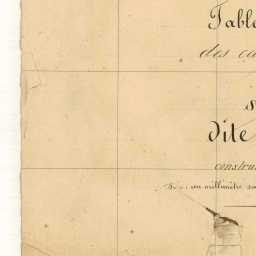 Table
des ca
s
dite
constru
un millimètre